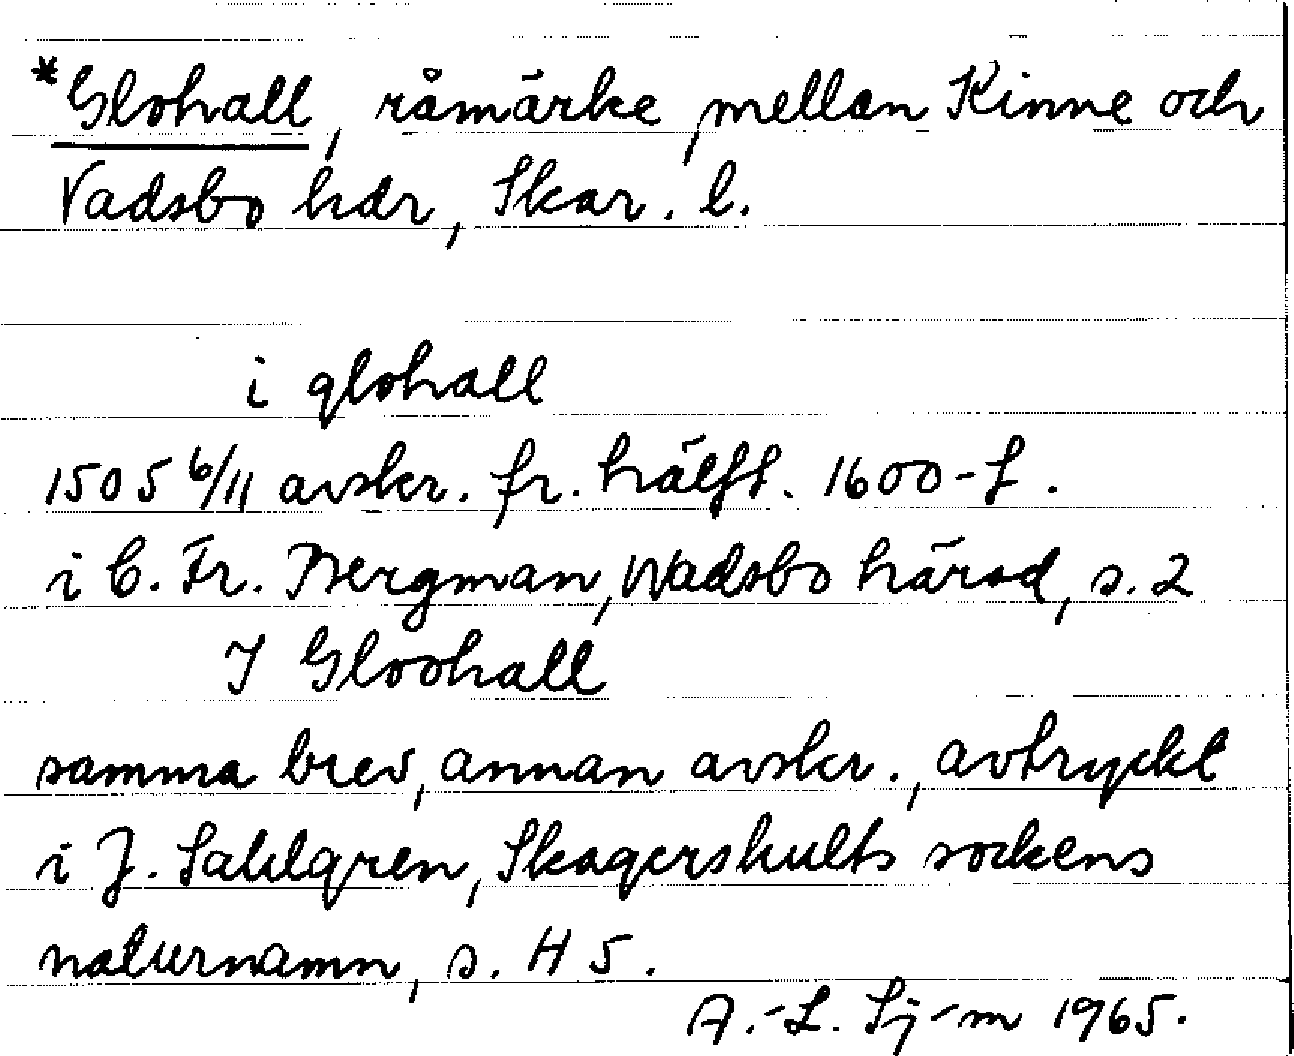 *Glohall, råmärke mellan Kinne och
Vadsbo hdr, Skar. l.
i glohall
1505 6/11 avskr. fr. hälft. 1600-t.
i C. Fr. Bergman, Wadsbo härad, s. 2
I Gloohall
samma brev, annan avskr., avtryckt
i J. Sahlgren, Skagershults sockens
naturnamn, s. H 5.
A.-L. Sj-m 1965.